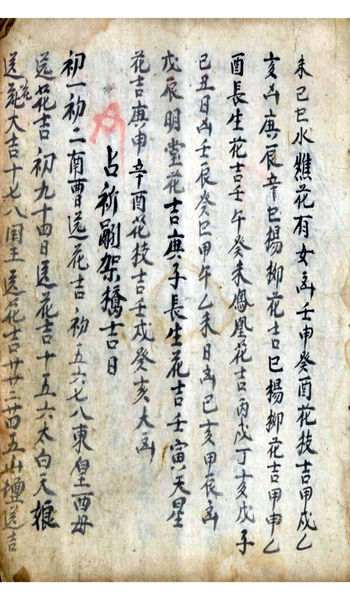 未己巳水樵花有女凶壬申癸酉花枝吉甲戌乙
亥凶庚辰辛巳楊柳花吉巳楊柳花吉甲申乙
酉長生花吉壬午癸未鳳凰花吉丙戌丁亥戊子
己丑日凶壬辰癸巳甲午乙未日凶己亥甲辰凶
戊辰明堂花吉庚子長生花吉壬寅天星
花吉庚申辛酉花枝吉壬戌癸亥大凶
占祈嗣架橋吉日
初一初二南曹送花吉初五六七八東皇西母
送花吉初九十四日送花吉十五六太白天娘
送花大吉十七八国王送花吉廿二三四五山壇送吉